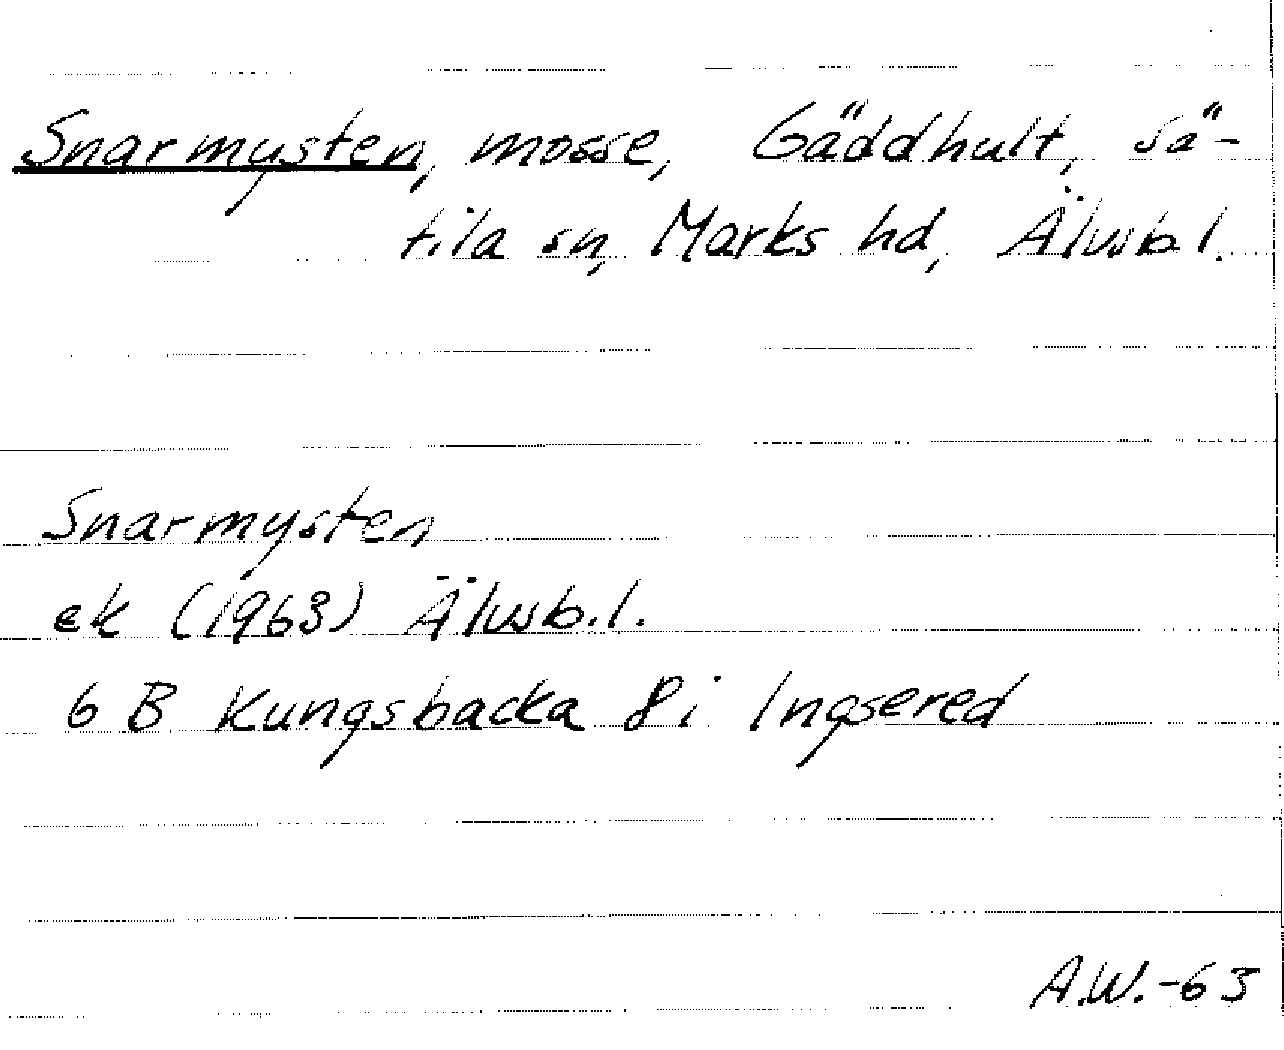 Snarmysten, mosse, Gäddhult, Sä-
tila sn, Marks hd, Älvsb l.
Snarmysten
ek (1963) Älvsb. l.
6 B Kungsbacka 8 i Ingsered
A.W.-63